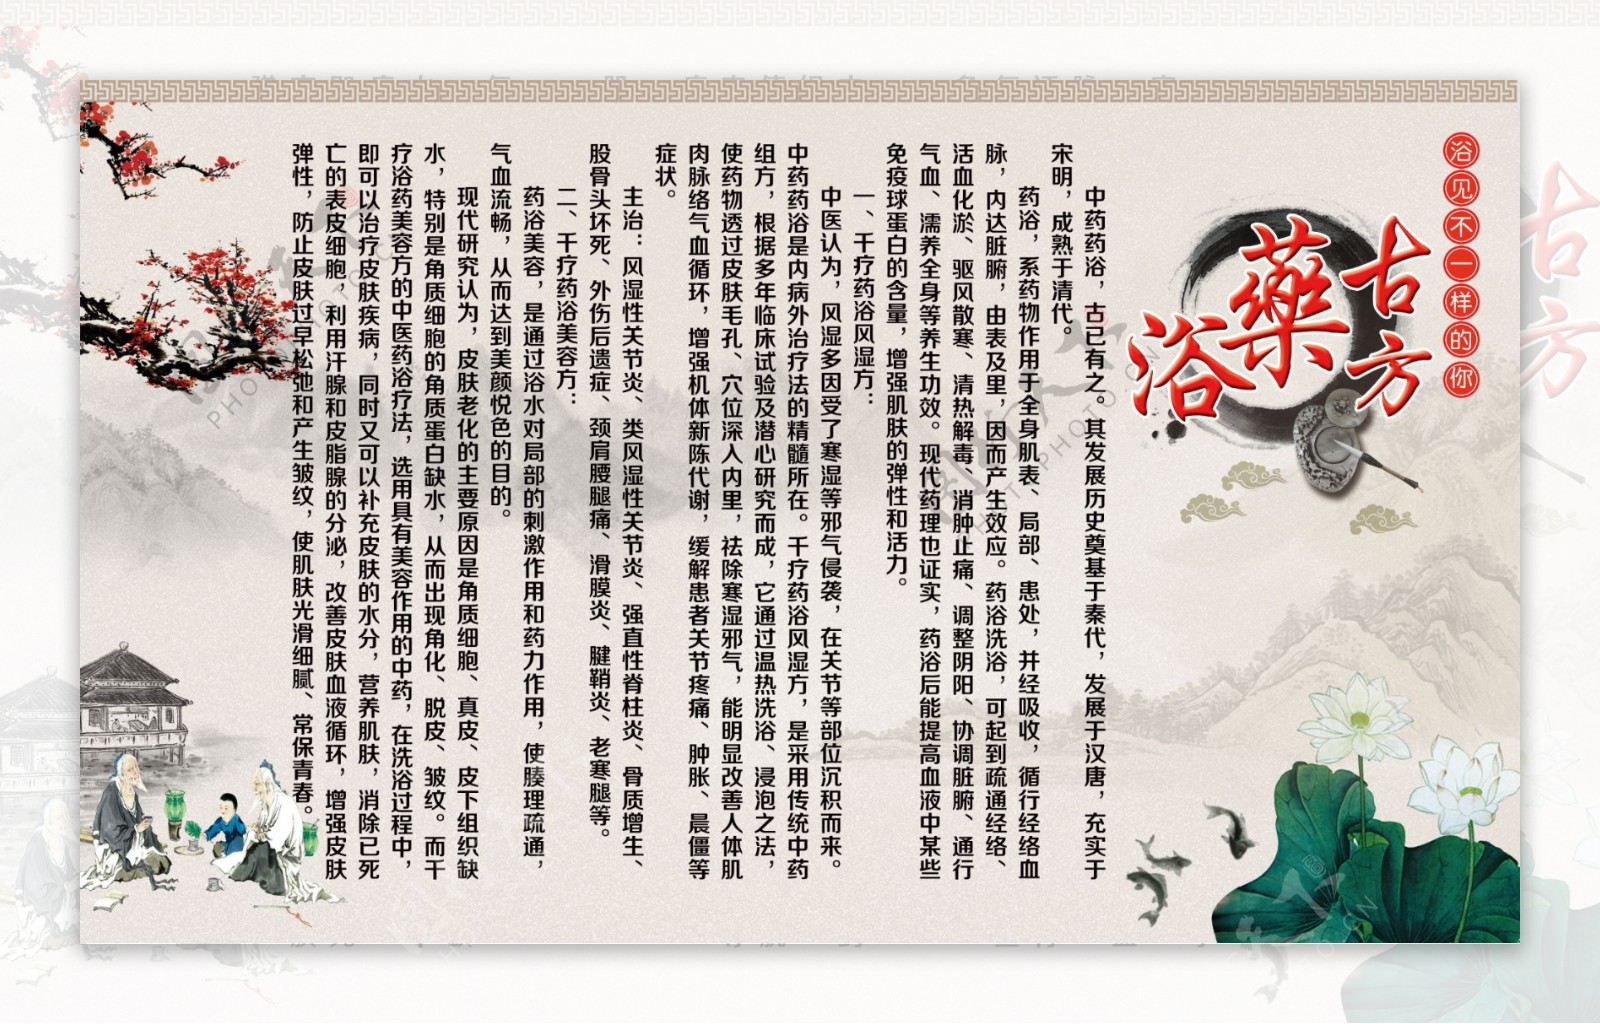 浴见不一样的你
古方
藥
浴
中药药浴，古已有之。其发展历史奠基于秦代，发展于汉唐，充实于
宋明，成熟于清代。
药浴，系药物作用于全身肌表、局部、患处，并经吸收，循行经络血
脉，内达脏腑，由表及里，因而产生效应。药浴洗浴，可起到疏通经络、
活血化淤、驱风散寒、清热解毒、消肿止痛、调整阴阳、协调脏腑、通行
气血、濡养全身等养生功效。现代药理也证实，药浴后能提高血液中某些
免疫球蛋白的含量，增强肌肤的弹性和活力。
一、千疗药浴风湿方：
中医认为，风湿多因受了寒湿等邪气侵袭，在关节等部位沉积而来。
中药药浴是内病外治疗法的精髓所在。千疗药浴风湿方，是采用传统中药
组方，根据多年临床试验及潜心研究而成，它通过温热洗浴、浸泡之法，
使药物透过皮肤毛孔、穴位深入内里，祛除寒湿邪气，能明显改善人体肌
肉脉络气血循环，增强机体新陈代谢，缓解患者关节疼痛、肿胀、晨僵等
症状。
主治：风湿性关节炎、类风湿性关节炎、强直性脊柱炎、骨质增生、
股骨头坏死、外伤后遗症、颈肩腰腿痛、滑膜炎、腱鞘炎、老寒腿等。
二、千疗药浴美容方：
药浴美容，是通过浴水对局部的刺激作用和药力作用，使腠理疏通，
气血流畅，从而达到美颜悦色的目的。
现代研究认为，皮肤老化的主要原因是角质细胞、真皮、皮下组织缺
水，特别是角质细胞的角质蛋白缺水，从而出现角化、脱皮、皱纹。而千
疗浴药美容方的中医药浴疗法，选用具有美容作用的中药，在洗浴过程中，
即可以治疗皮肤疾病，同时又可以补充皮肤的水分，营养肌肤，消除已死
亡的表皮细胞，利用汗腺和皮脂腺的分泌，改善皮肤血液循环，增强皮肤
弹性，防止皮肤过早松弛和产生皱纹，使肌肤光滑细腻、常保青春。